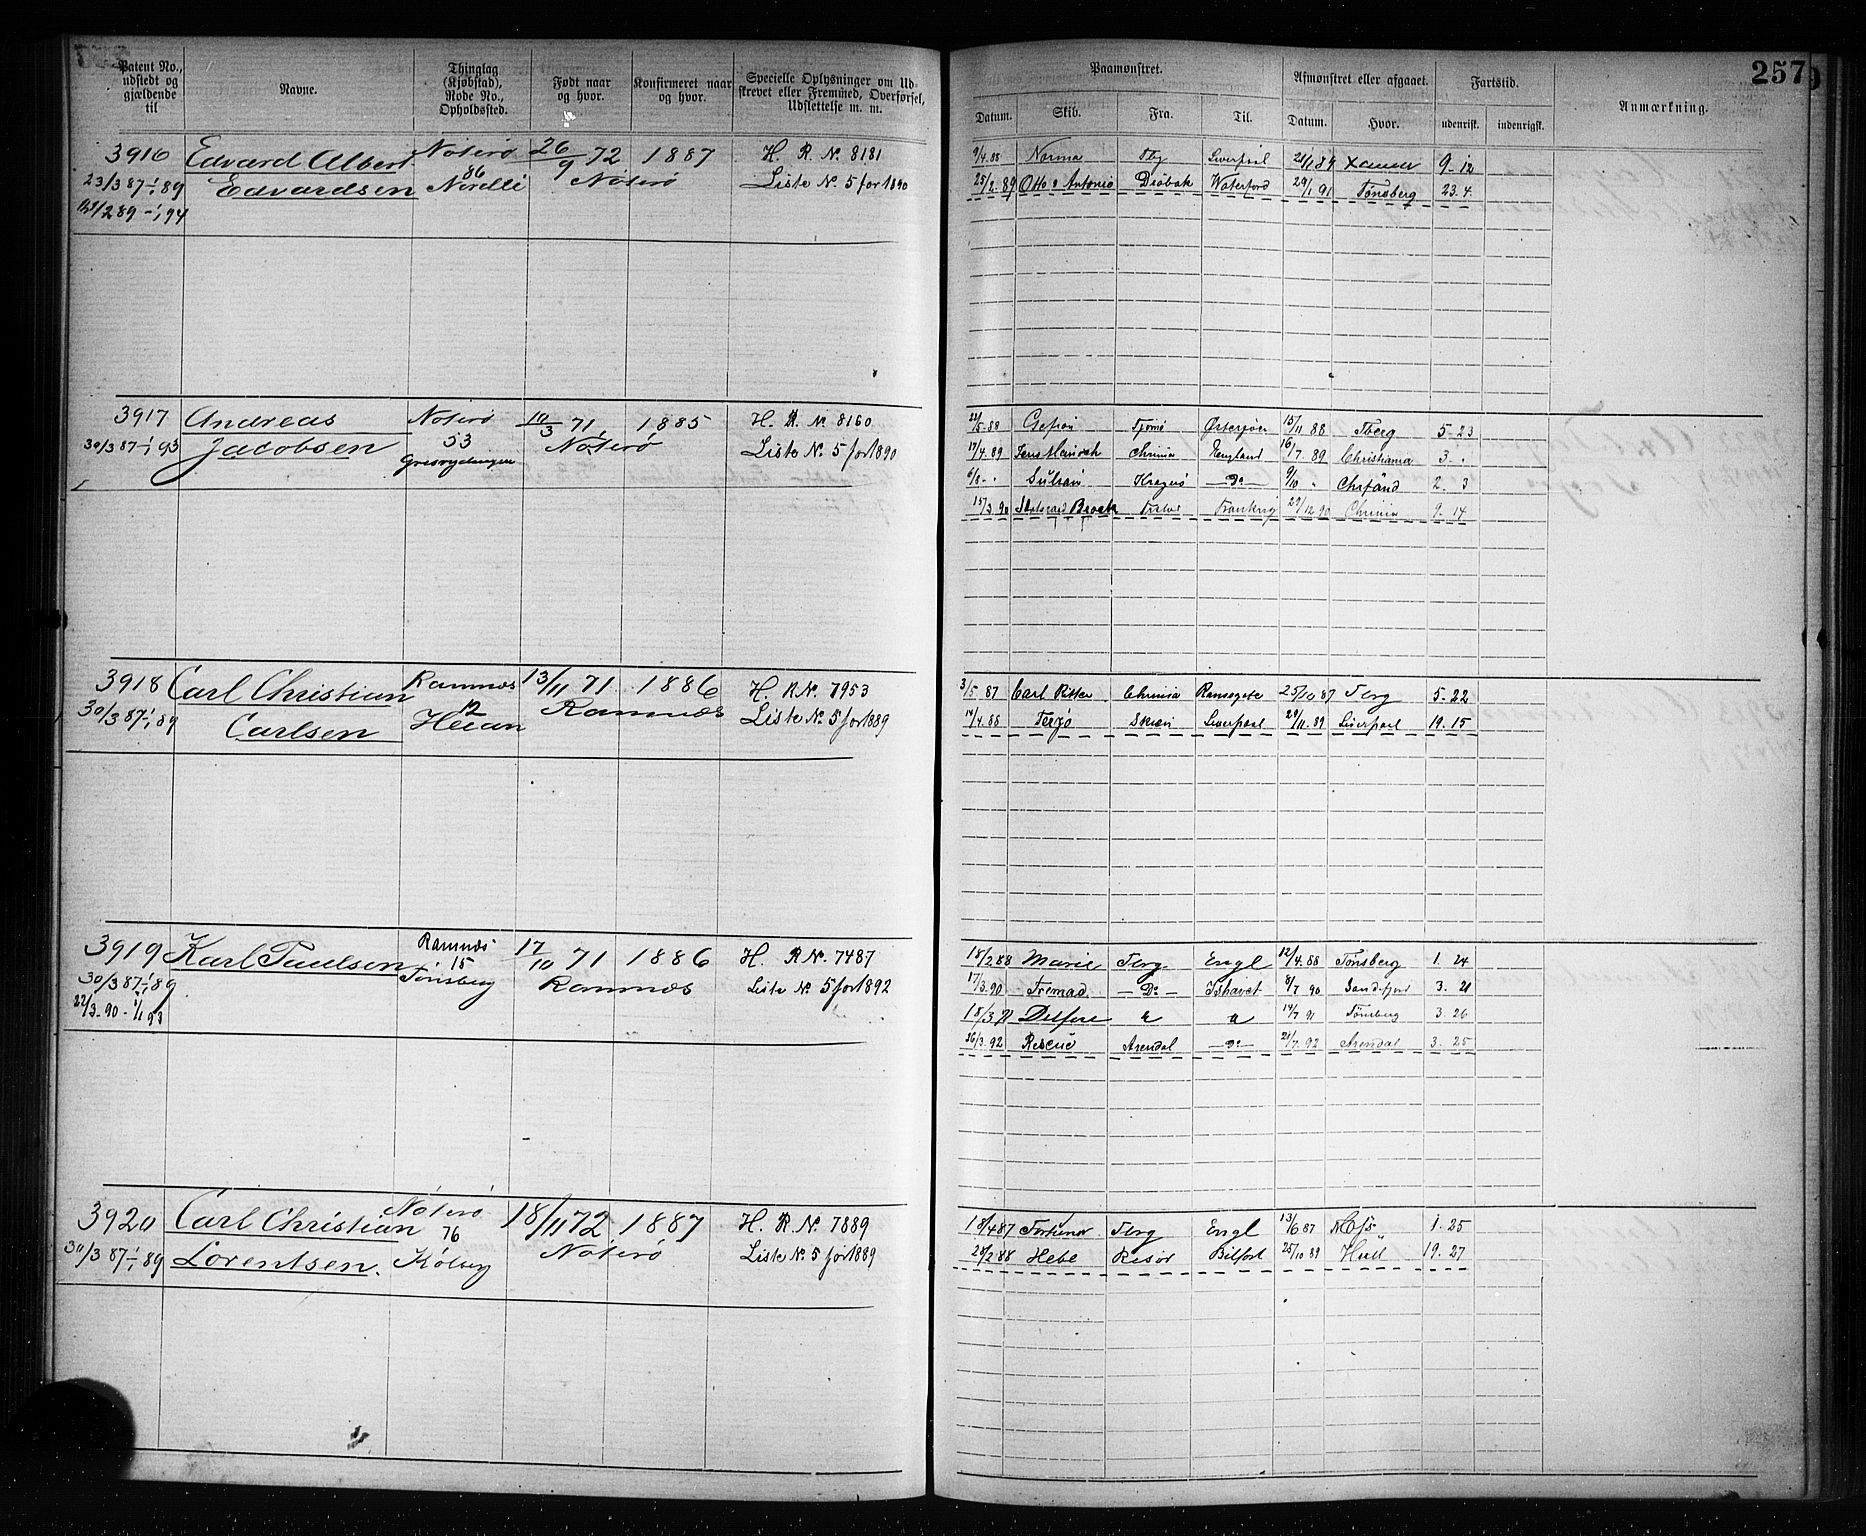 257
Patent No., udstedt og gjældende til
Navne.
Thinglag (Kjøbstad), Rode No., Opholdssted.
Født naar og hvor.
Konfirmeret naar og hvor.
Specielle Oplysninger om Udskrevet eller Fremmed, Overførsel, Udslettelse m. m.
Paamønstret.
Afmønstret eller afgaaet.
Fartstid.
Anmærkning.
Datum. Skib. Fra. Til. Datum. Hvor. udenrigsk. indenrigsk.
3916 Edvard Albert Nøterø 26/9 72 1887 H. R. No. 8181
23/3 87-1/1 89 Edvardsen 86 Nordli Nøterø Liste No. 5 for 1890
2 89 - 1/1 94
9/4 88 Norma Tbg Liverpool 21/1 89 9-12
25/2 89 Otto & Antonio Drøbak Waterford 29/1 91 Tønsberg 23. 4.
3917 Andreas Nøterø 10/3 71, 1885 H. R. No. 8160
30/3 87-1/1 93 Jacobsen 53 Nøterø Liste No. 5 for 1890
22/5 88 Gefion Tjømø Østersjøen 15/11 88 Tberg 5-23
17/4 89 Chrinia England 16/7 89 Christiania 3 -
6/8 - Kragerø - Do - 9/10 " Chrsand 2. 3
15/3 90 Brock Frankrig 29/12 90 Chrinia 9-14
3918 Carl Christian Ramnæs 13/11 71 1886 H. R No. 7953
30/3 87-1/1 89 Carlsen 12 Heian Ramnæs Liste No. 5 for 1889
3/5 87 Carl Ritter Chrinia Ramsegate 25/10 87 Tbrg 5-22
14/4 88 Skien Liverpool 29/11 89 Liverpool 19. 15
3919 Karl Paulsen Ramnæs 17/10 71 1886 H. R No. 7487
30/3 87-1/1 89 15 Tønsberg Ramnæs Liste No. 5 for 1892
22/3-90-1/1 93
18/2 88 Marie Tbrg. Engl 12/4 88 Tønsberg 1. 24
17/3 90 Fremad. - Do - Ishavet 8/7 90 Sandefjord 3. 21
18/3 91 " " 14/7 91 Tønsberg 3. 26
26/3 92 Rescue Arendal - Do - 21/7 92 Arendal 3. 25
3920 Carl Christian Nøterø 18/11 72 1887 H. R No. 7889
30/3 87-1/1 89 Lorentsen. 76 Kølberg Nøterø Liste No. 5 for 1889
18/4 87 Fortuna Tbrg Engl 13/6 87 1. 25
28/2 88 Hebe Risør Bilfort 25/10 89 Hull 19. 27